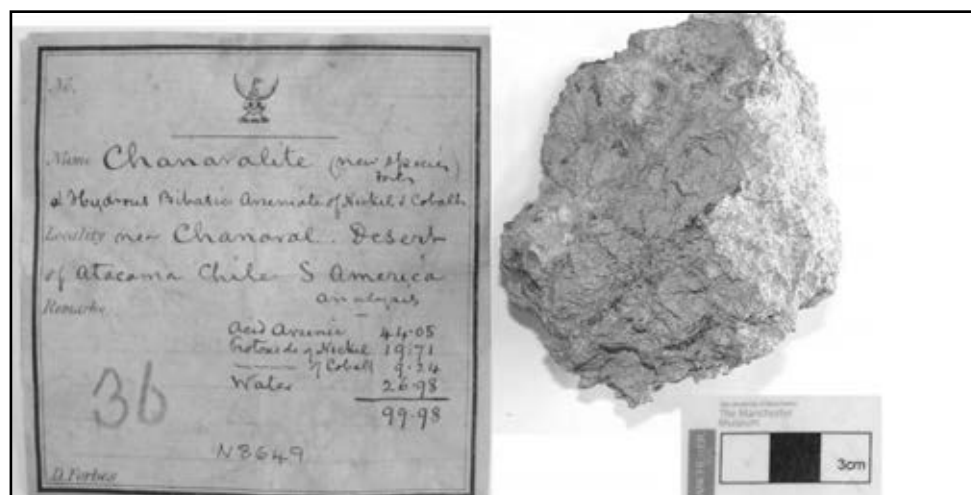 No.
Name Chanaralite (new species)
Forbes
a Hydrous Bibasic Arseniate of Nickel & Cobalt
Locality near Chanaral. Desert
of Atacama Chile S America
Remarks
analysis
Acid Arsenic 44.05
Protoxide of Nickel 19.71
of Cobalt 9.24
Water 26.98
99.98
36
N8649
D. Forbes
The Manchester
Museum
3cm